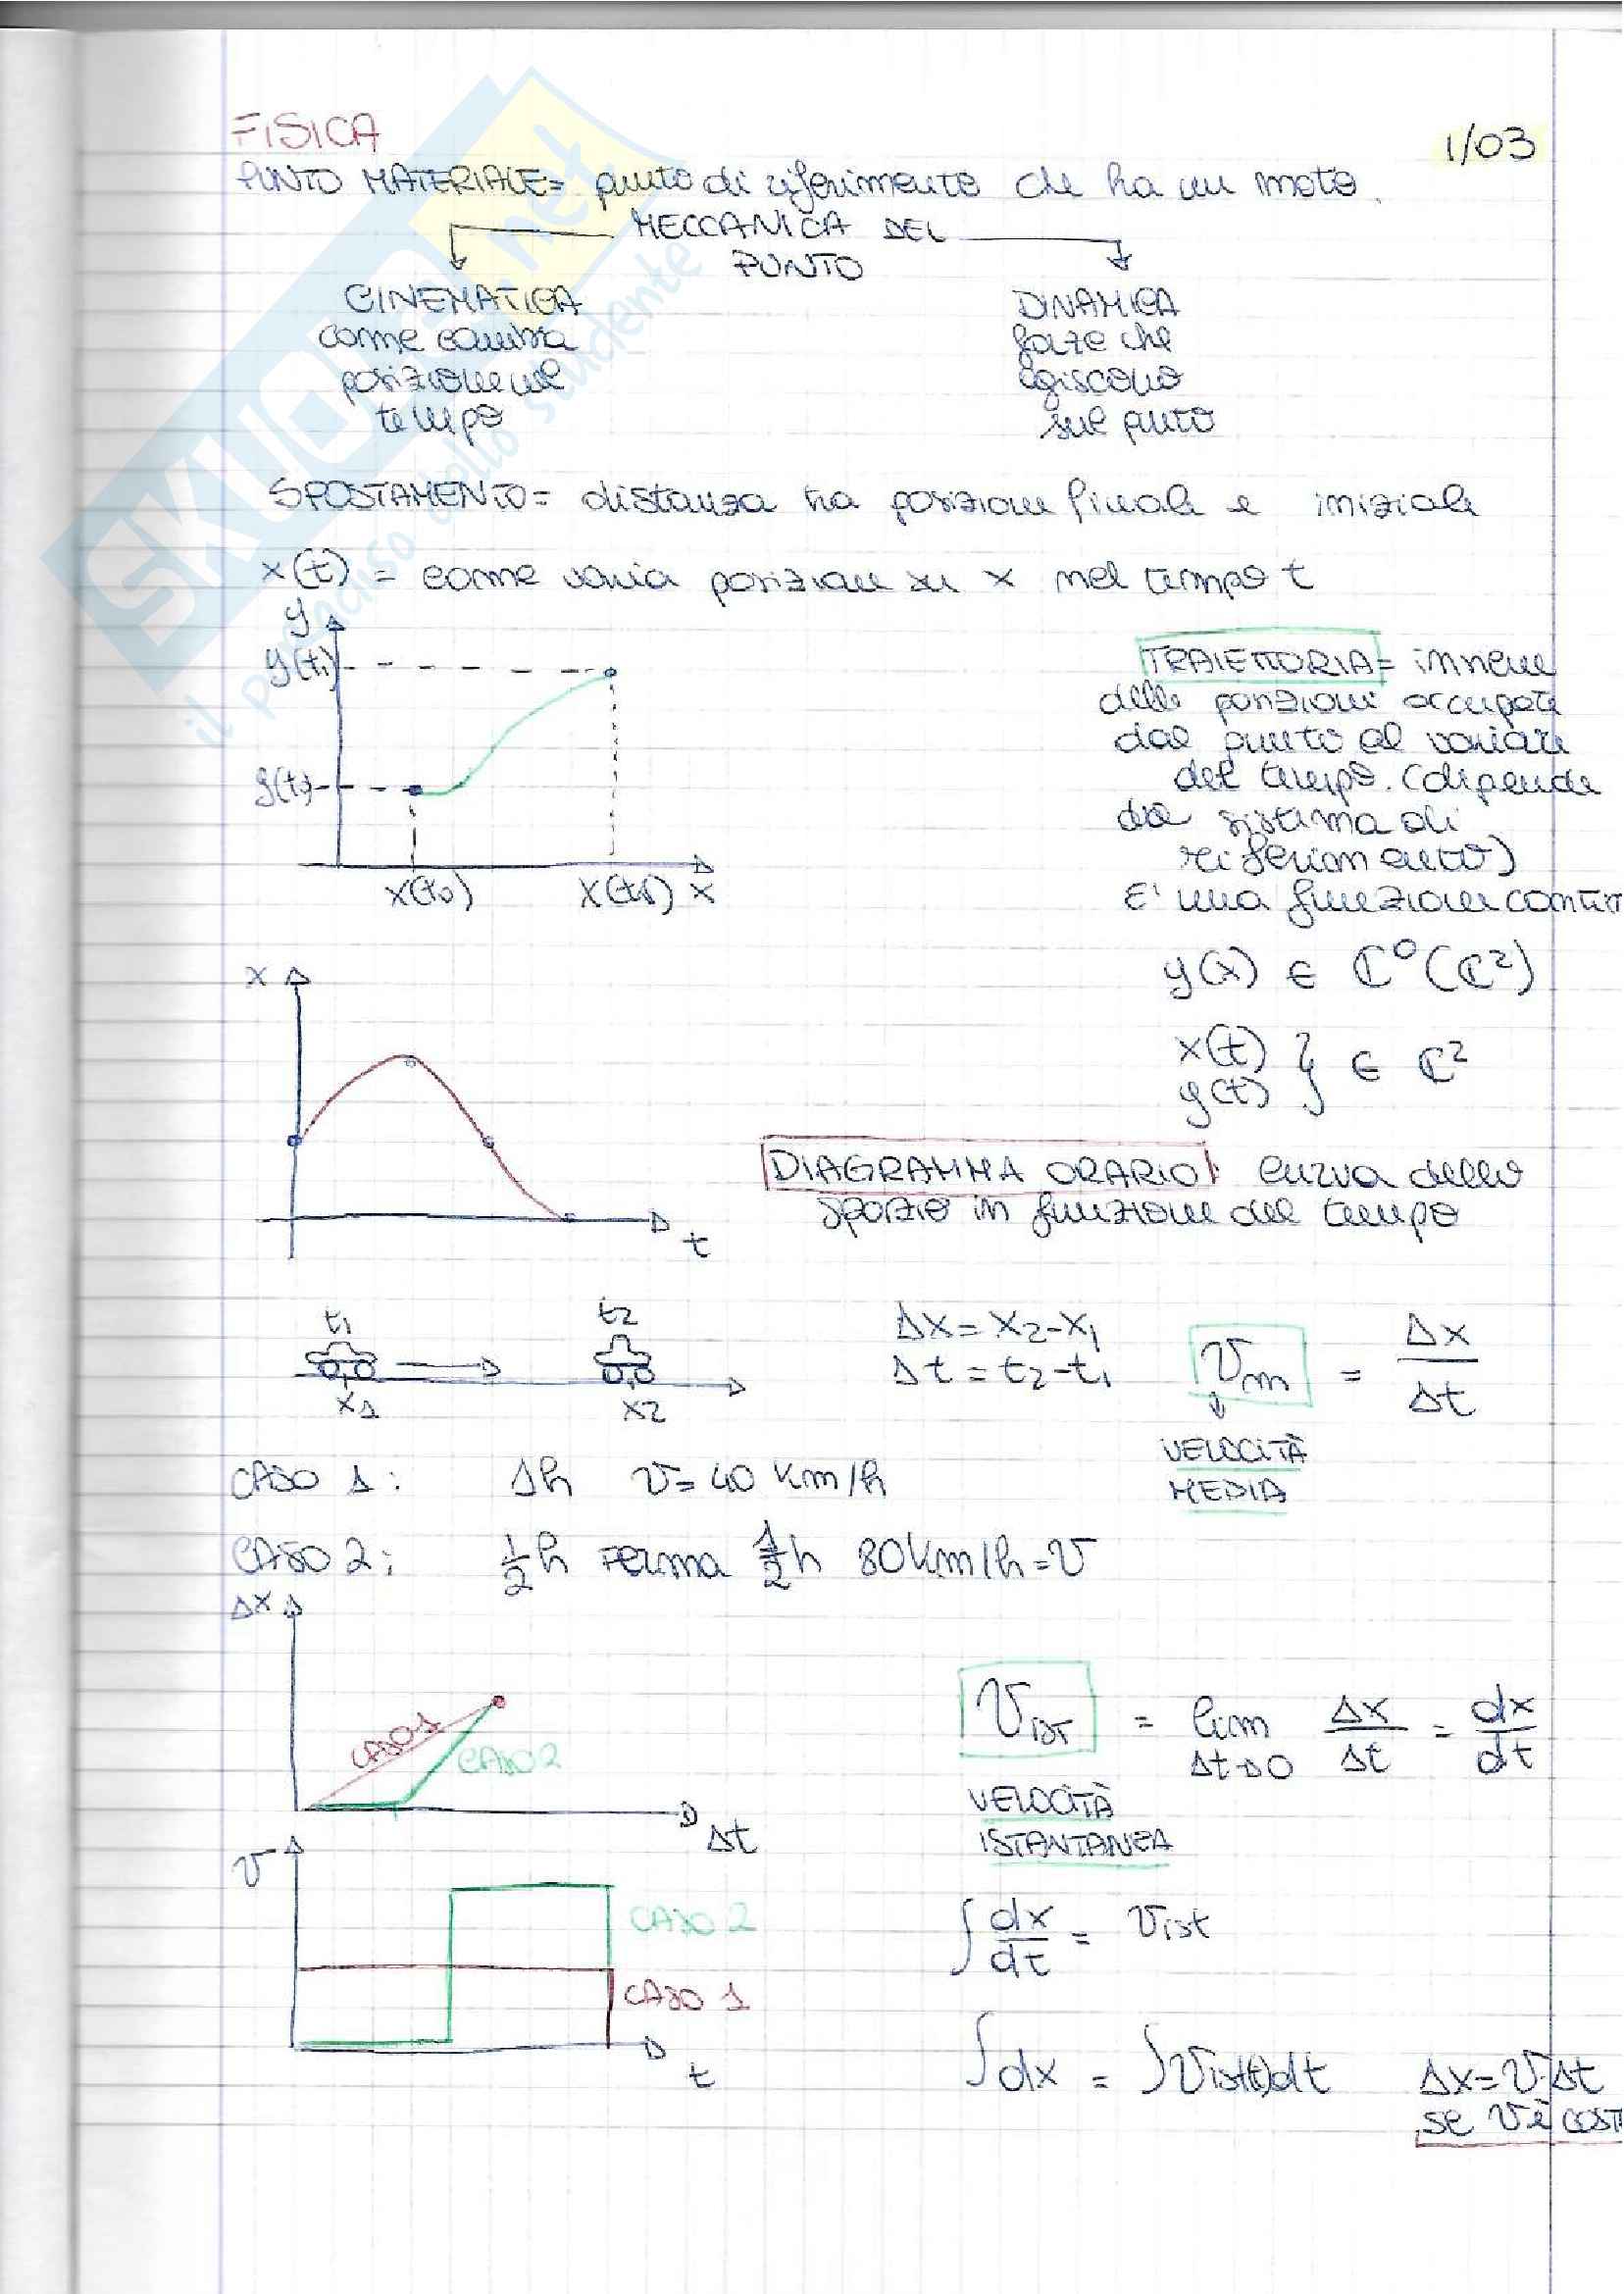 FISICA
1/03
PUNTO MATERIALE= punto di riferimento che ha un moto.
MECCANICA DEL
PUNTO
CINEMATICA
come cambia
posizione nel
tempo
DINAMICA
forze che
agiscono
sul punto
SPOSTAMENTO= distanza tra posizione finale e iniziale
x(t) = come varia posizione su x nel tempo t
y
y(t₁)
y(t₀)
x(t₀)
x(t₁)
x
TRAIETTORIA= insieme
delle posizioni occupate
dal punto al variare
del tempo. (dipende
dal sistema di
riferimento)
E' una funzione contin
y(x) ∈ ℂ⁰(ℂ²)
x(t)
y(t) } ∈ ℂ²
x
t
DIAGRAMMA ORARIO: curva dello
spazio in funzione del tempo
t₁
t₂
x₁
x₂
Δx= x₂-x₁
Δt = t₂-t₁
vm = Δx/Δt
VELOCITÀ
MEDIA
CASO 1: 1h v= 40 Km/h
CASO 2: 1/2 h ferma 1/2 h 80Km/h=v
Δx
CASO 1
CASO 2
Δt
Vist = lim Δt→0 Δx/Δt = dx/dt
VELOCITÀ
ISTANTANEA
v
CASO 2
CASO 1
t
∫ dx/dt = Vist
∫dx = ∫Vist(t)dt
Δx= v·Δt
se v è cost
SKUOLA.net
il paradiso dello studente